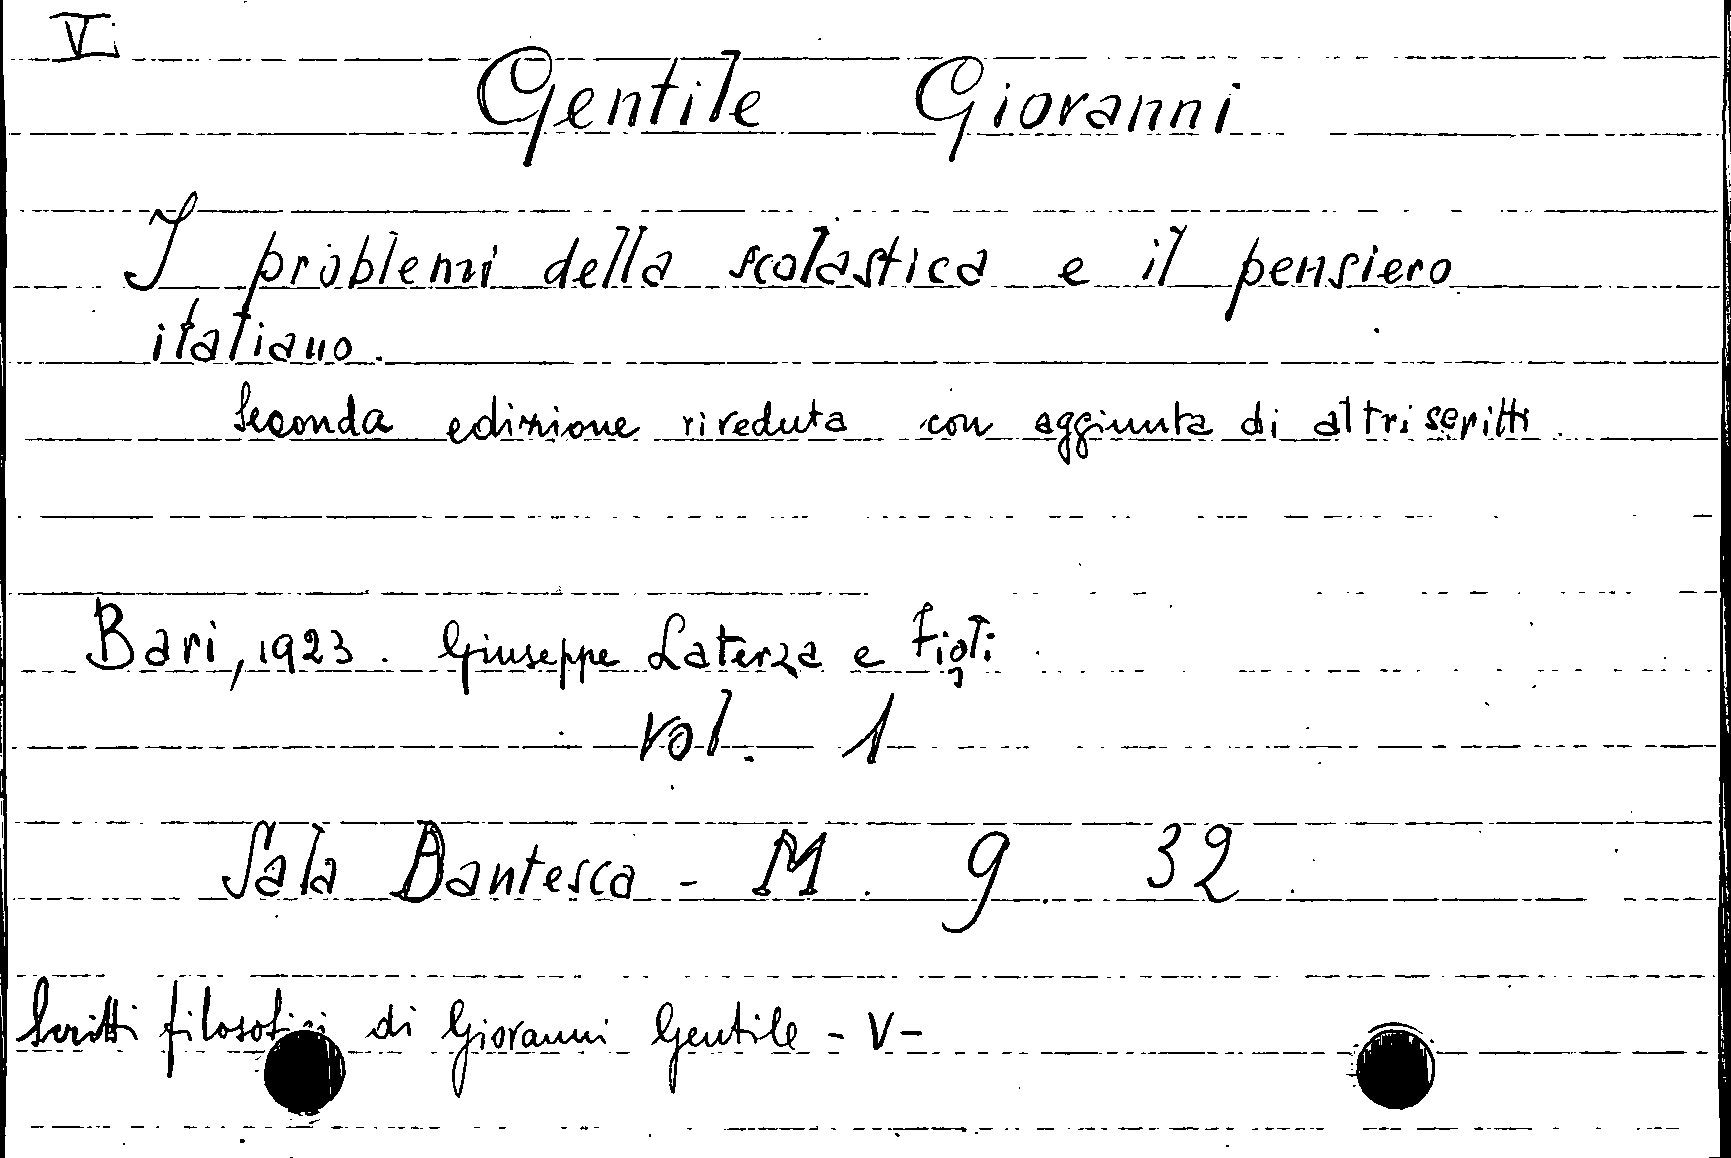 V
Gentile Giovanni
I problemi della scolastica e il pensiero
italiano.
Seconda edizione riveduta con aggiunta di altri scritti
Bari, 1923. Giuseppe Laterza e Figli
vol. 1
Sala Dantesca - M. 9 32
Scritti filosofici di Giovanni Gentile - V -